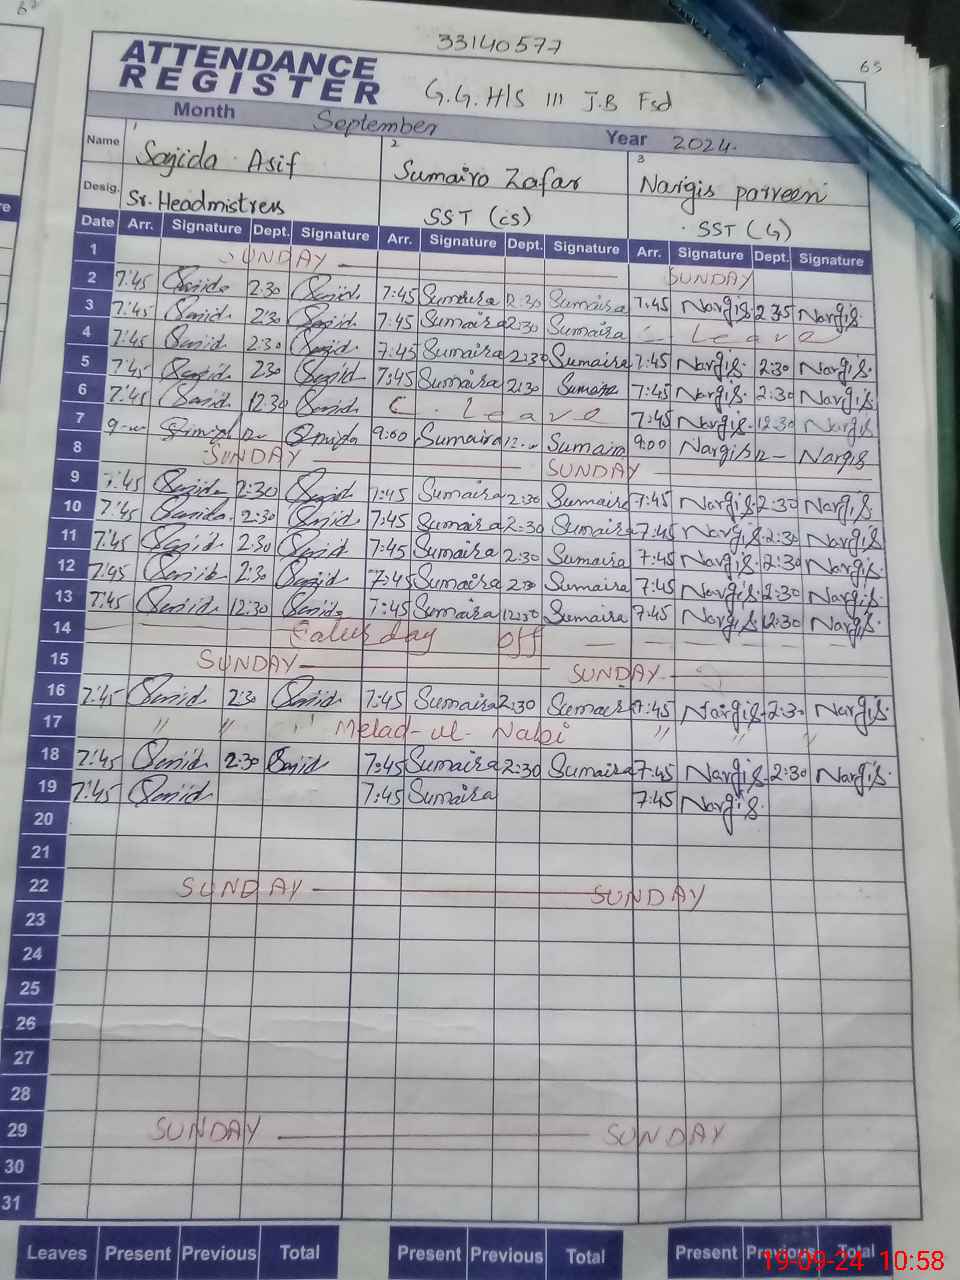 33140577
65
ATTENDANCE
REGISTER
G.G.H/S 111 J.B Fsd
Month September Year 2024.
Name 1 Sajida Asif 2 Sumaira Zafar 3 Nargis parveen
Desig. Sr. Headmistress SST (cs) SST (G)
Date Arr. Signature Dept. Signature Arr. Signature Dept. Signature Arr. Signature Dept. Signature
1 SUNDAY SUNDAY
2 7:45 2:30 7:45 Sumaira 2:30 Sumaira 7:45 Nargis. 2:35 Nargis.
3 7:45 2:30 7:45 Sumaira 2:30 Sumaira C. Leave
4 7:45 2:30 7:45 Sumaira 2:30 Sumaira 7:45 Nargis. 2:30 Nargis.
5 7:45 2:30 7:45 Sumaira 2:30 Sumaira 7:45 Nargis. 2:30 Nargis.
6 7:45 12:30 C. Leave 7:45 Nargis. 12:30 Nargis
7 9:00 Sumaira Sumaira 9:00 Nargis 12 Nargis
8 SUNDAY SUNDAY
9 7:45 2:30 7:45 Sumaira 2:30 Sumaira 7:45 Nargis. 2:30 Nargis.
10 7:45 2:30 7:45 Sumaira 2:30 Sumaira 7:45 Nargis. 2:30 Nargis.
11 7:45 2:30 7:45 Sumaira 2:30 Sumaira 7:45 Nargis. 2:30 Nargis.
12 7:45 2:30 7:45 Sumaira 2:30 Sumaira 7:45 Nargis. 2:30 Nargis.
13 7:45 12:30 7:45 Sumaira 12:30 Sumaira 7:45 Nargis. 12:30 Nargis.
14 Saturday off
15 SUNDAY SUNDAY
16 7:45 2:30 7:45 Sumaira 2:30 Sumaira 7:45 Nargis. 2:30 Nargis.
17 " " " Melad-ul-Nabi " " "
18 7:45 2:30 7:45 Sumaira 2:30 Sumaira 7:45 Nargis. 2:30 Nargis.
19 7:45 7:45 Sumaira 7:45 Nargis.
20
21
22 SUNDAY SUNDAY
23
24
25
26
27
28
29 SUNDAY SUNDAY
30
31
Leaves Present Previous Total Present Previous Total Present Previous Total
19-09-24 10:58